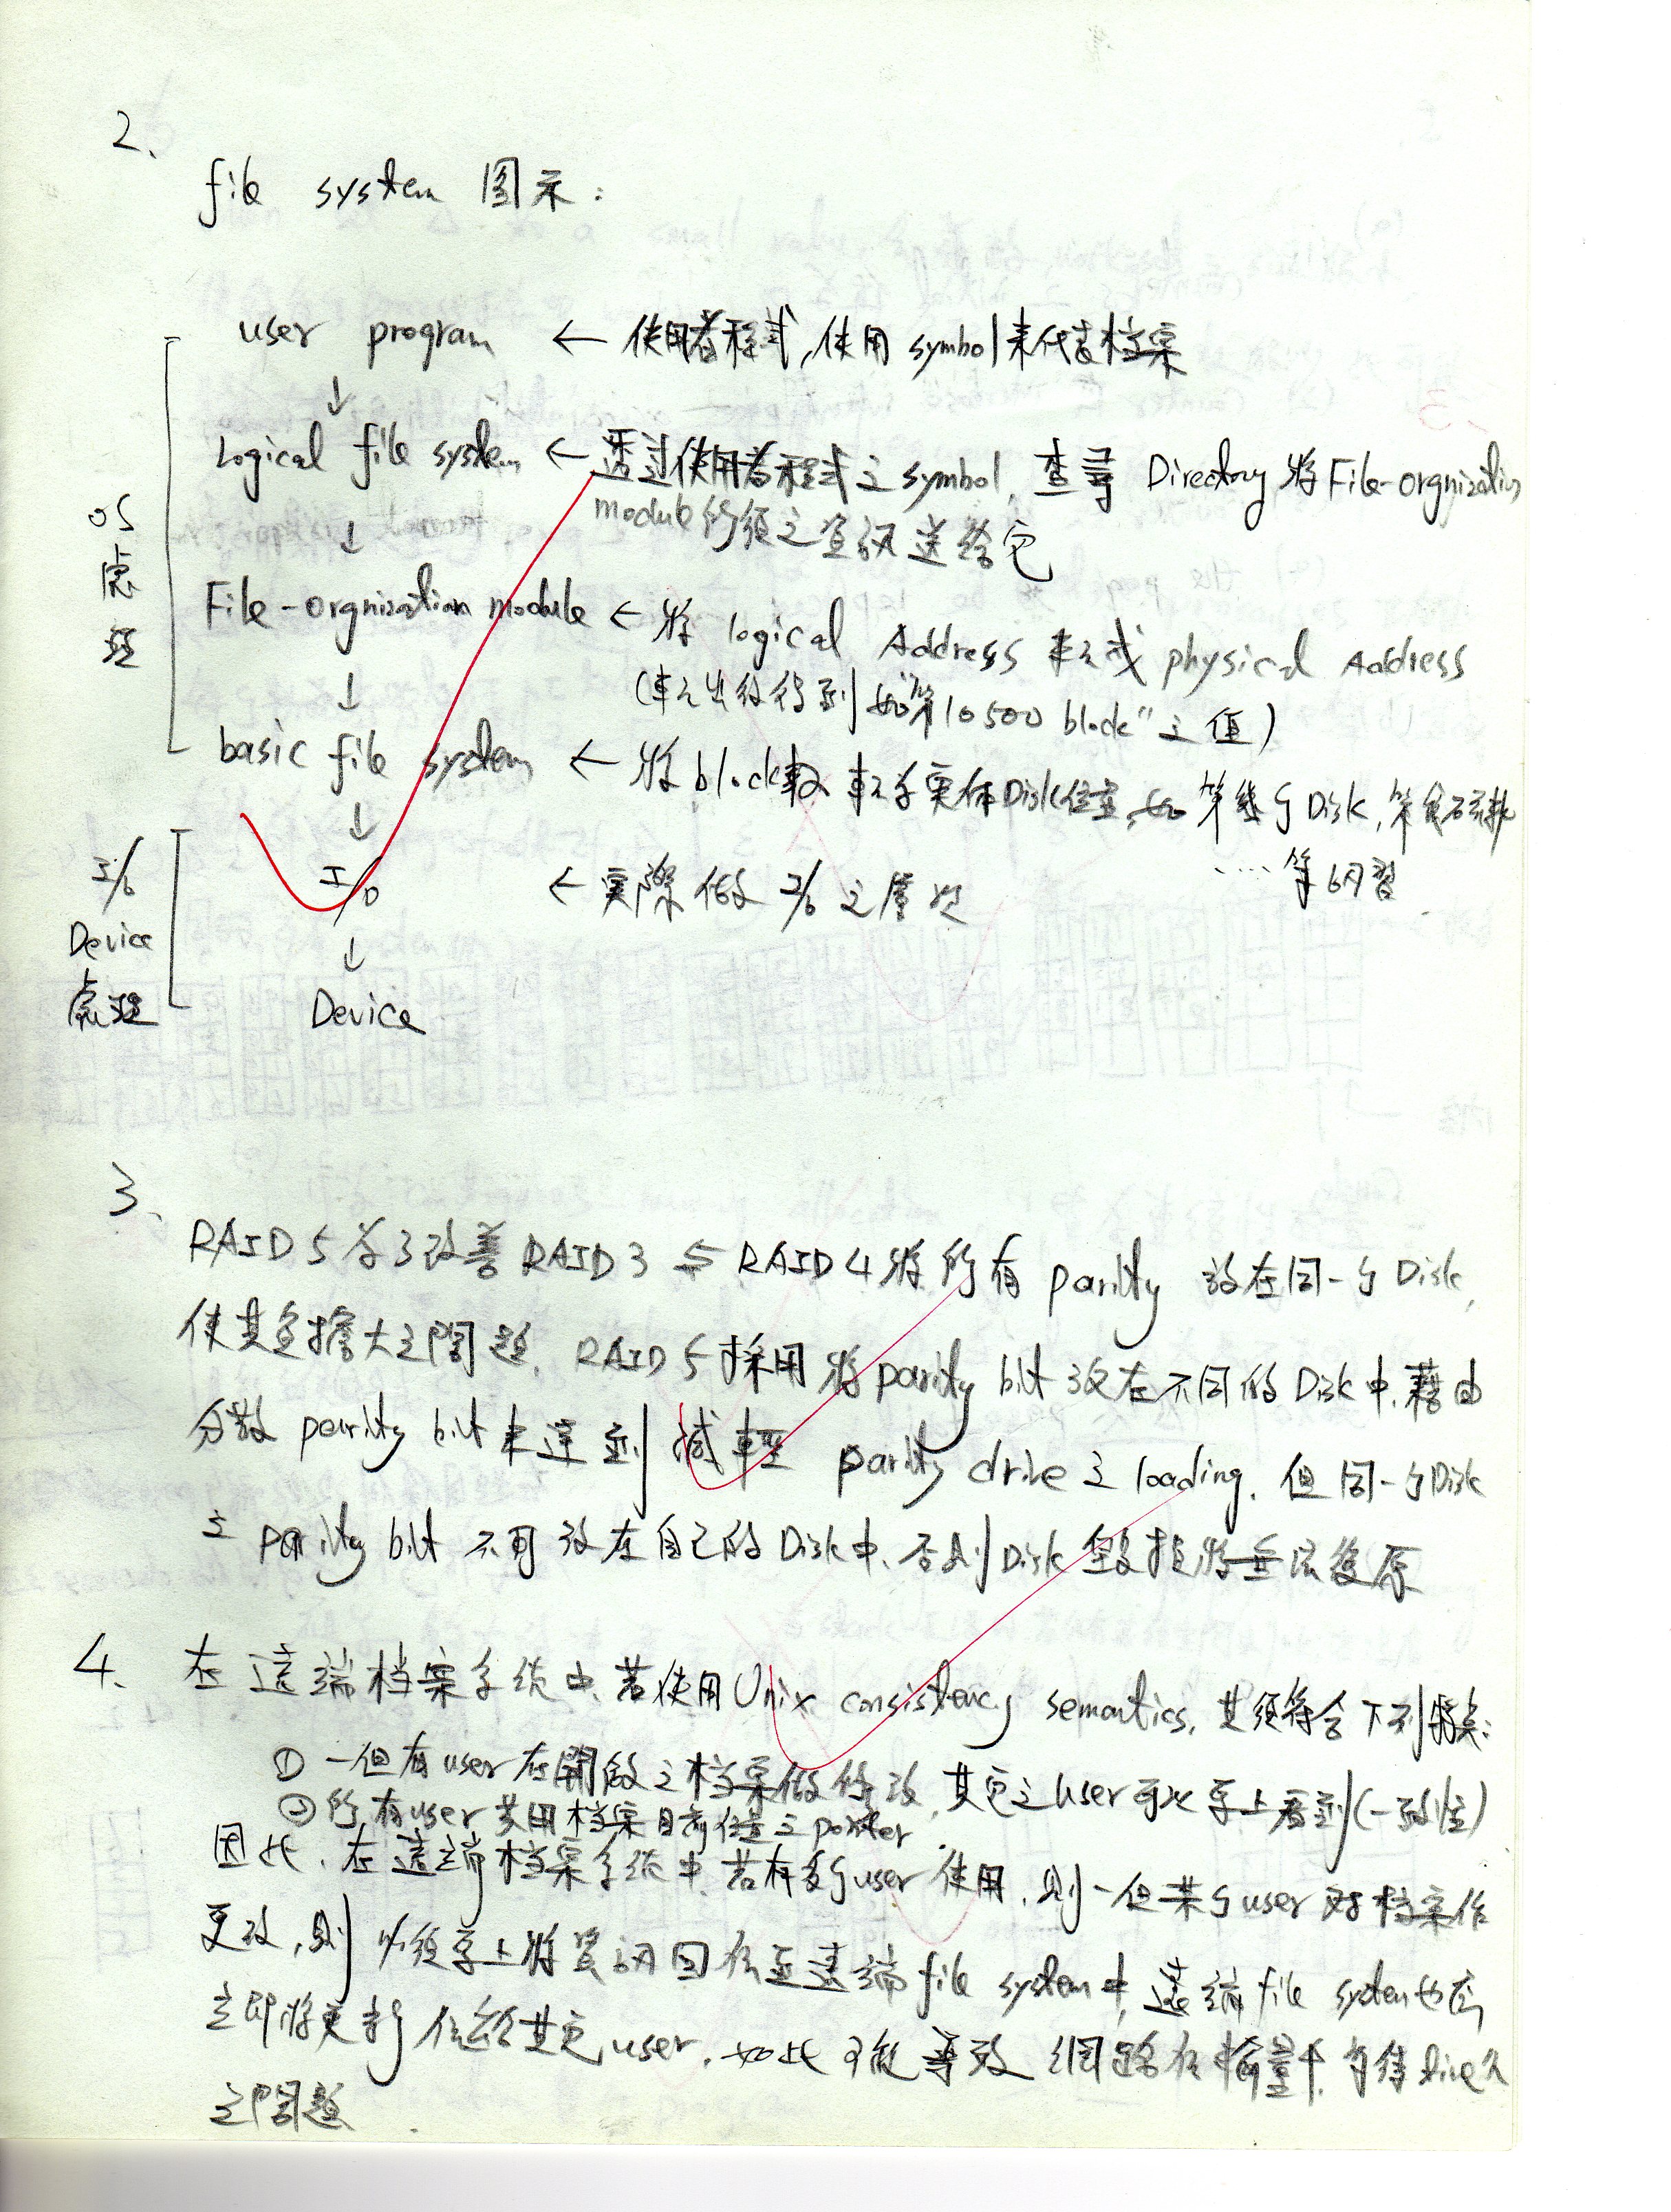 2、
file system 图示：
user program ← 使用者程式,使用 symbol 來代表档案
↓
Logical file system ← 透过使用者程式之 symbol, 查尋 Directory 将 File-orgnization
module 所須之資訊送給它
↓
OS
處
理
File-orgnization module ← 将 logical Address 転成 physical Address
(転出後得到如"第10500 block"之值)
↓
basic file system ← 将 block 数 転為実体Disk位置,如 第幾台Disk,第幾磁軌
....等的
↓
I/O
Device
處理
I/O ← 実際做 I/O 之層次
↓
Device
3、
RAID 5 為了改善 RAID 3 与 RAID 4 将所有 parity 放在同一台 Disk,
使其負擔大之問題. RAID 5 採用将 parity bit 放在不同的 Disk 中,藉由
分散 parity bit 來達到減輕 parity drive 之 loading. 但同一台Disk
之 parity bit 不可放在自己的 Disk 中,否則 Disk 毀損将無法復原
4、 在遠端档案系統中,若使用 Unix consistency semantics, 其須符合下列特点:
① 一但有 user 在開啟之档案做修改,其它之 user 可以馬上看到(一致性)
② 所有 user 共用档案目前位置之 pointer.
因此,在遠端档案系統中,若有多台 user 使用,則一但某台 user 対档案作
更改,則必須馬上将資訊回传至遠端 file system 中,遠端 file system 也在
立即将更新传給其它 user. 如此可能導致網路传輸量大,等待 time 久
之問題.